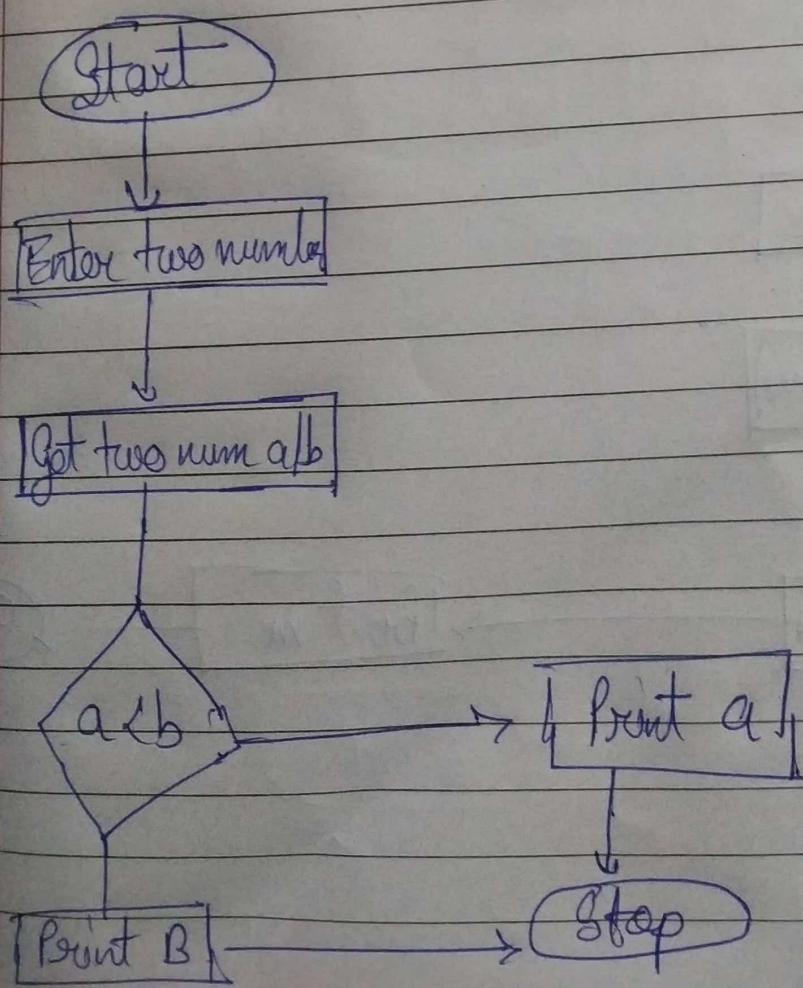 Start
Enter two number
Get two num a/b
a<b
Print a
Print B
Stop